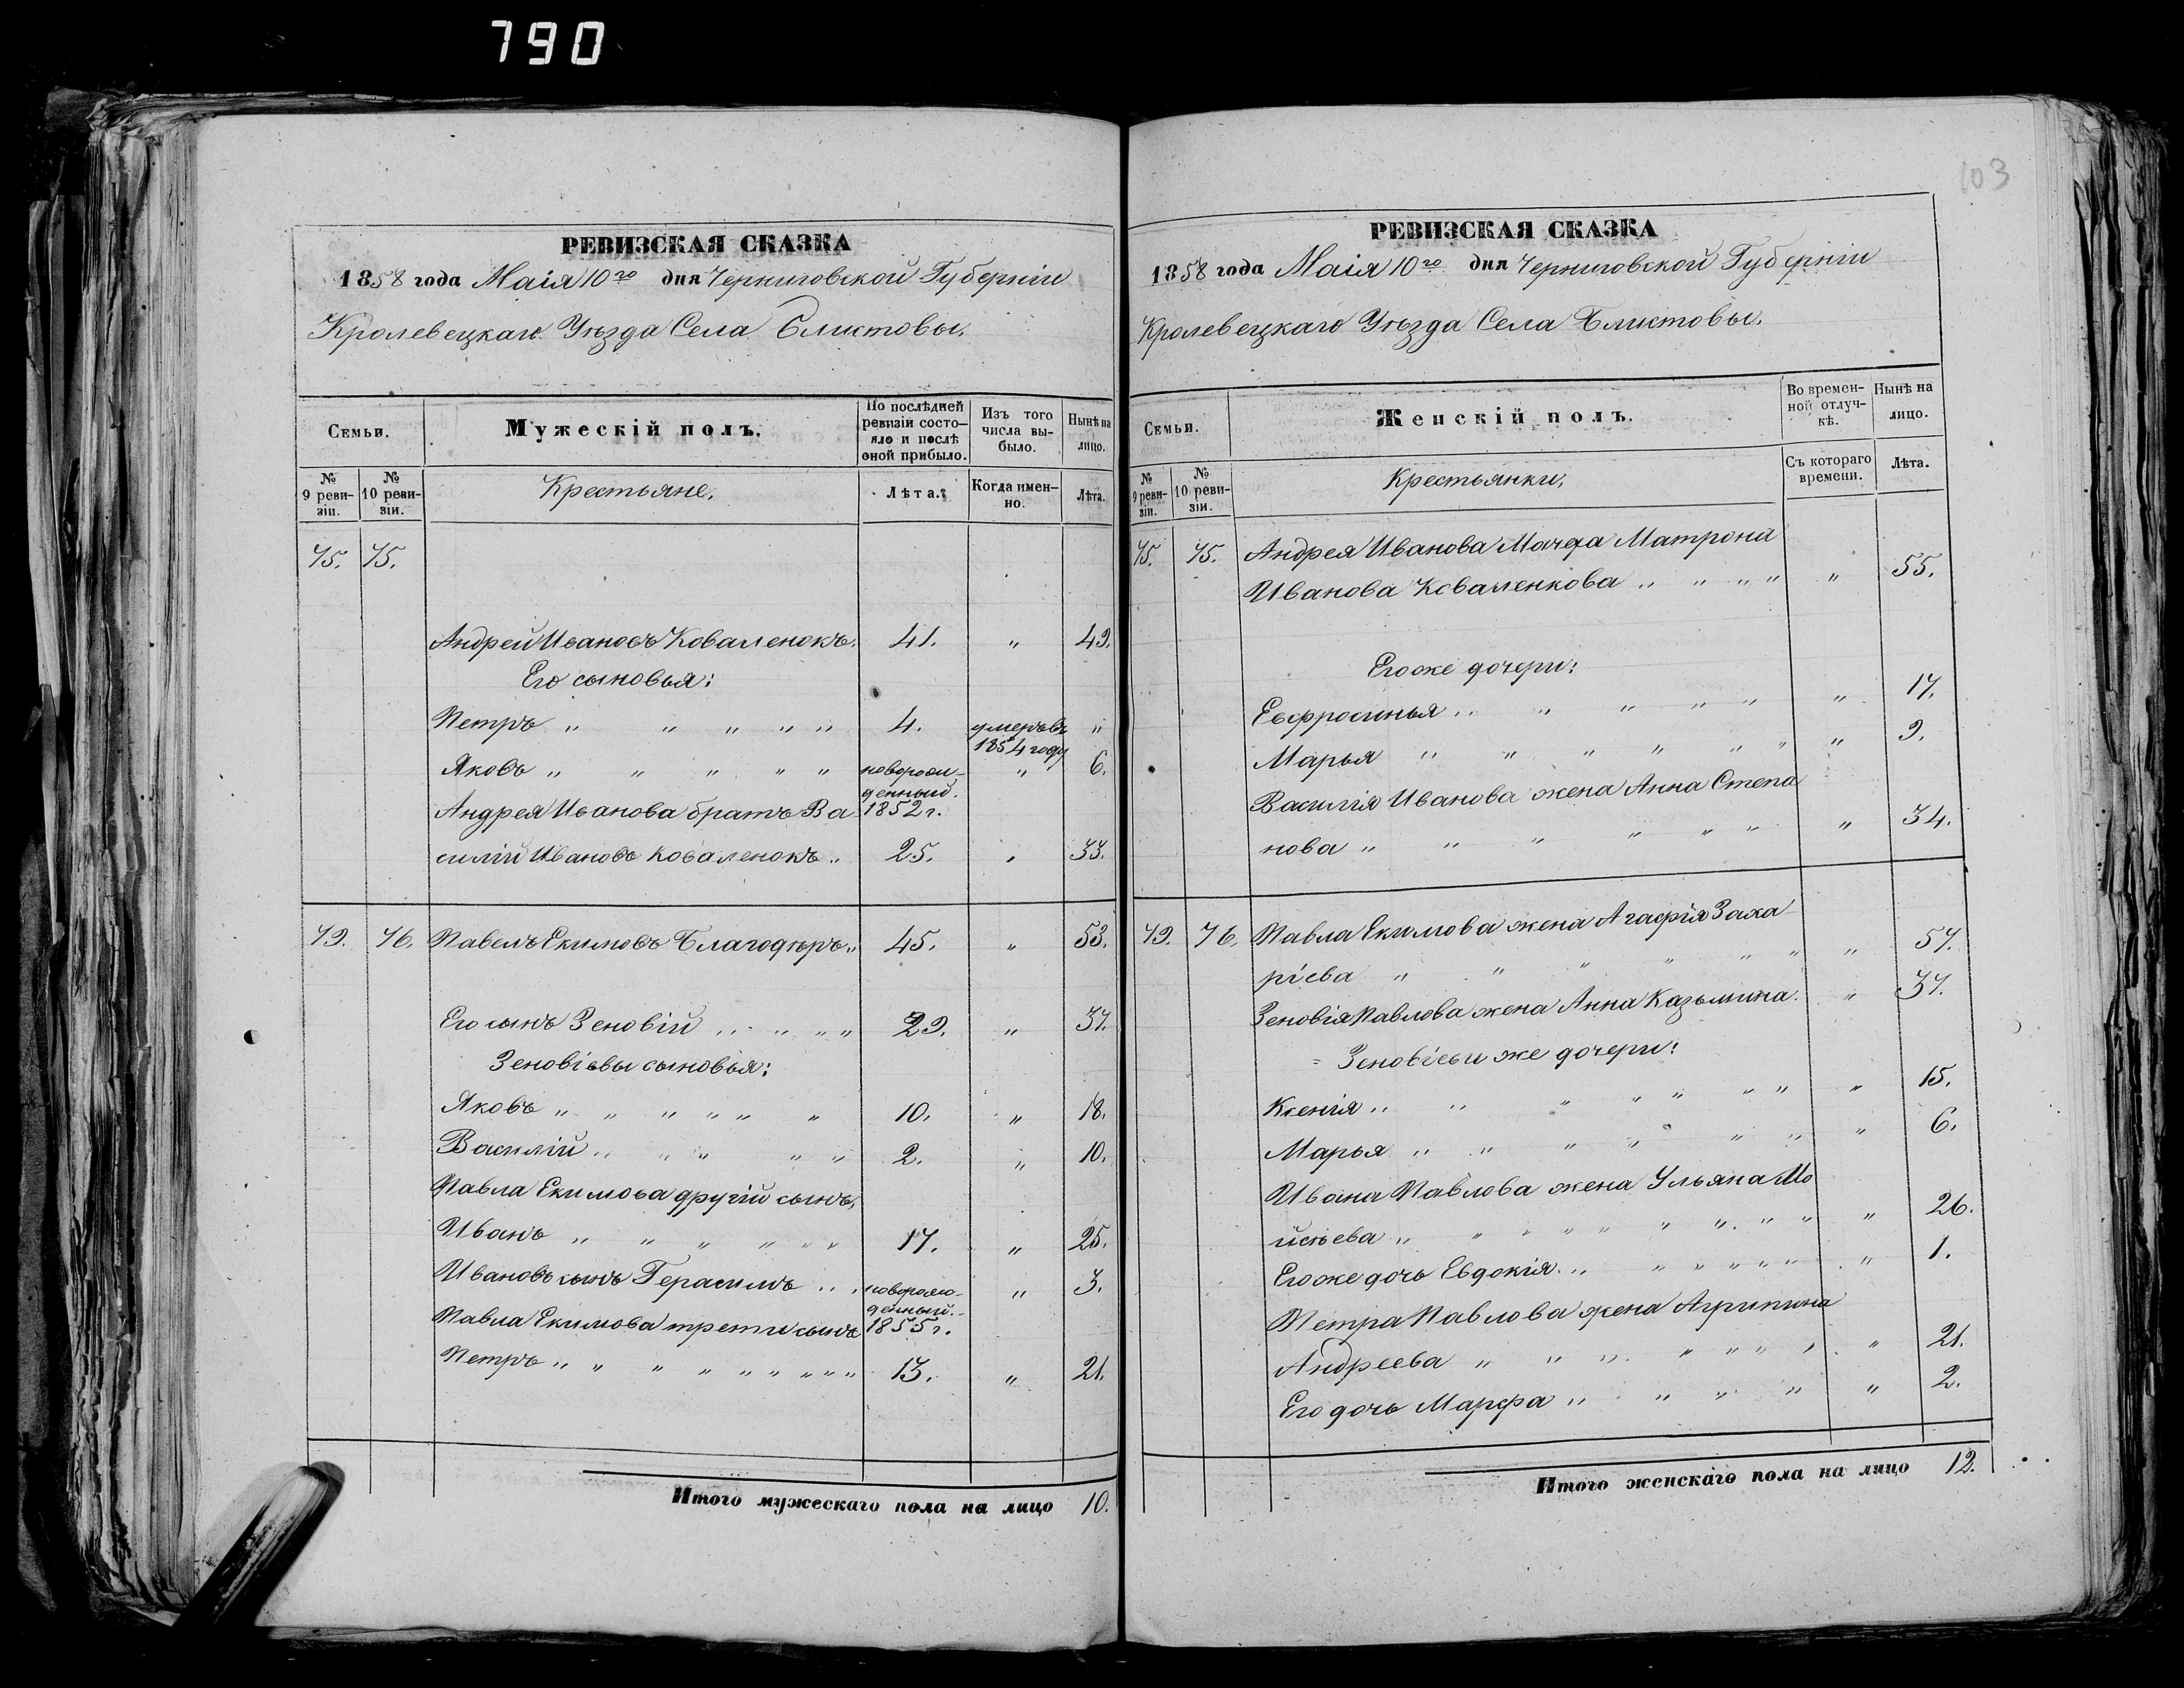 790
103
РЕВИЗСКАЯ СКАЗКА
1858 года Маія 10го дня Черниговской Губерніи
Кролевецкаго Уѣзда Села Блистовы.
Семьи.
Мужескій полъ.
По послѣдней ревизіи состояло и послѣ оной прибыло.
Изъ того числа выбыло.
Нынѣ на лицо.
№ 9 ревизіи.
№ 10 ревизіи.
Крестьяне,
Лѣта.
Когда именно.
Лѣта.
75. 75.
Андрей Ивановъ Коваленокъ. 41. " 49.
Его сыновья:
Петръ " " " " " 4. умеръ въ 1854 году "
Яковъ " " " " " новорожденный. 1852 г. " 6.
Андрея Иванова братъ Ва
силій Ивановъ Коваленокъ " 25. " 33.
79. 76. Павелъ Екимовъ Благодѣръ " 45. " 53.
Его сынъ Зеновій " " " " 29. " 37.
Зеновіевы сыновья:
Яковъ " " " " " " 10. " 18.
Василій " " " " " 2. " 10.
Павла Екимова другій сынъ,
Иванъ " " " " " " 17. " 25.
Ивановъ сынъ Герасимъ " " новорожденный. 1855 г. " 3.
Павла Екимова трети сынъ
Петръ " " " " " " " " " 13. " 21.
Итого мужескаго пола на лицо 10.
РЕВИЗСКАЯ СКАЗКА
1858 года Маія 10го дня Черниговской Губерніи
Кролевецкаго Уѣзда Села Блистовы.
Семьи.
Женскій полъ.
Во временной отлучкѣ.
Нынѣ на лицо.
№ 9 ревизіи.
№ 10 ревизіи.
Крестьянки,
Съ котораго времени.
Лѣта.
75. 75. Андрея Иванова Мачеха Матрона
Иванова Коваленкова " " " " " 55.
Его же дочери:
Евфросинья " " " " " " 17.
Марья " " " " " " " 9.
Василія Иванова жена Анна Степа
нова " " " " " " " 34.
79. 76. Павла Екимова жена Агафія Заха
ріева " " " " " " " 57.
Зеновія Павлова жена Анна Казьмина. " 37.
Зеновіевы же дочери:
Ксенія " " " " " " " " 15.
Марья " " " " " " " 6.
Ивана Павлова жена Ульяна Мо
йсѣева " " " " " " " " " " 26.
Его же дочь Евдокія " " " " " " " " 1.
Петра Павлова жена Агрипина
Андреева " " " " " " " " 21.
Его дочь Марфа " " " " " 2.
Итого женскаго пола на лицо 12.